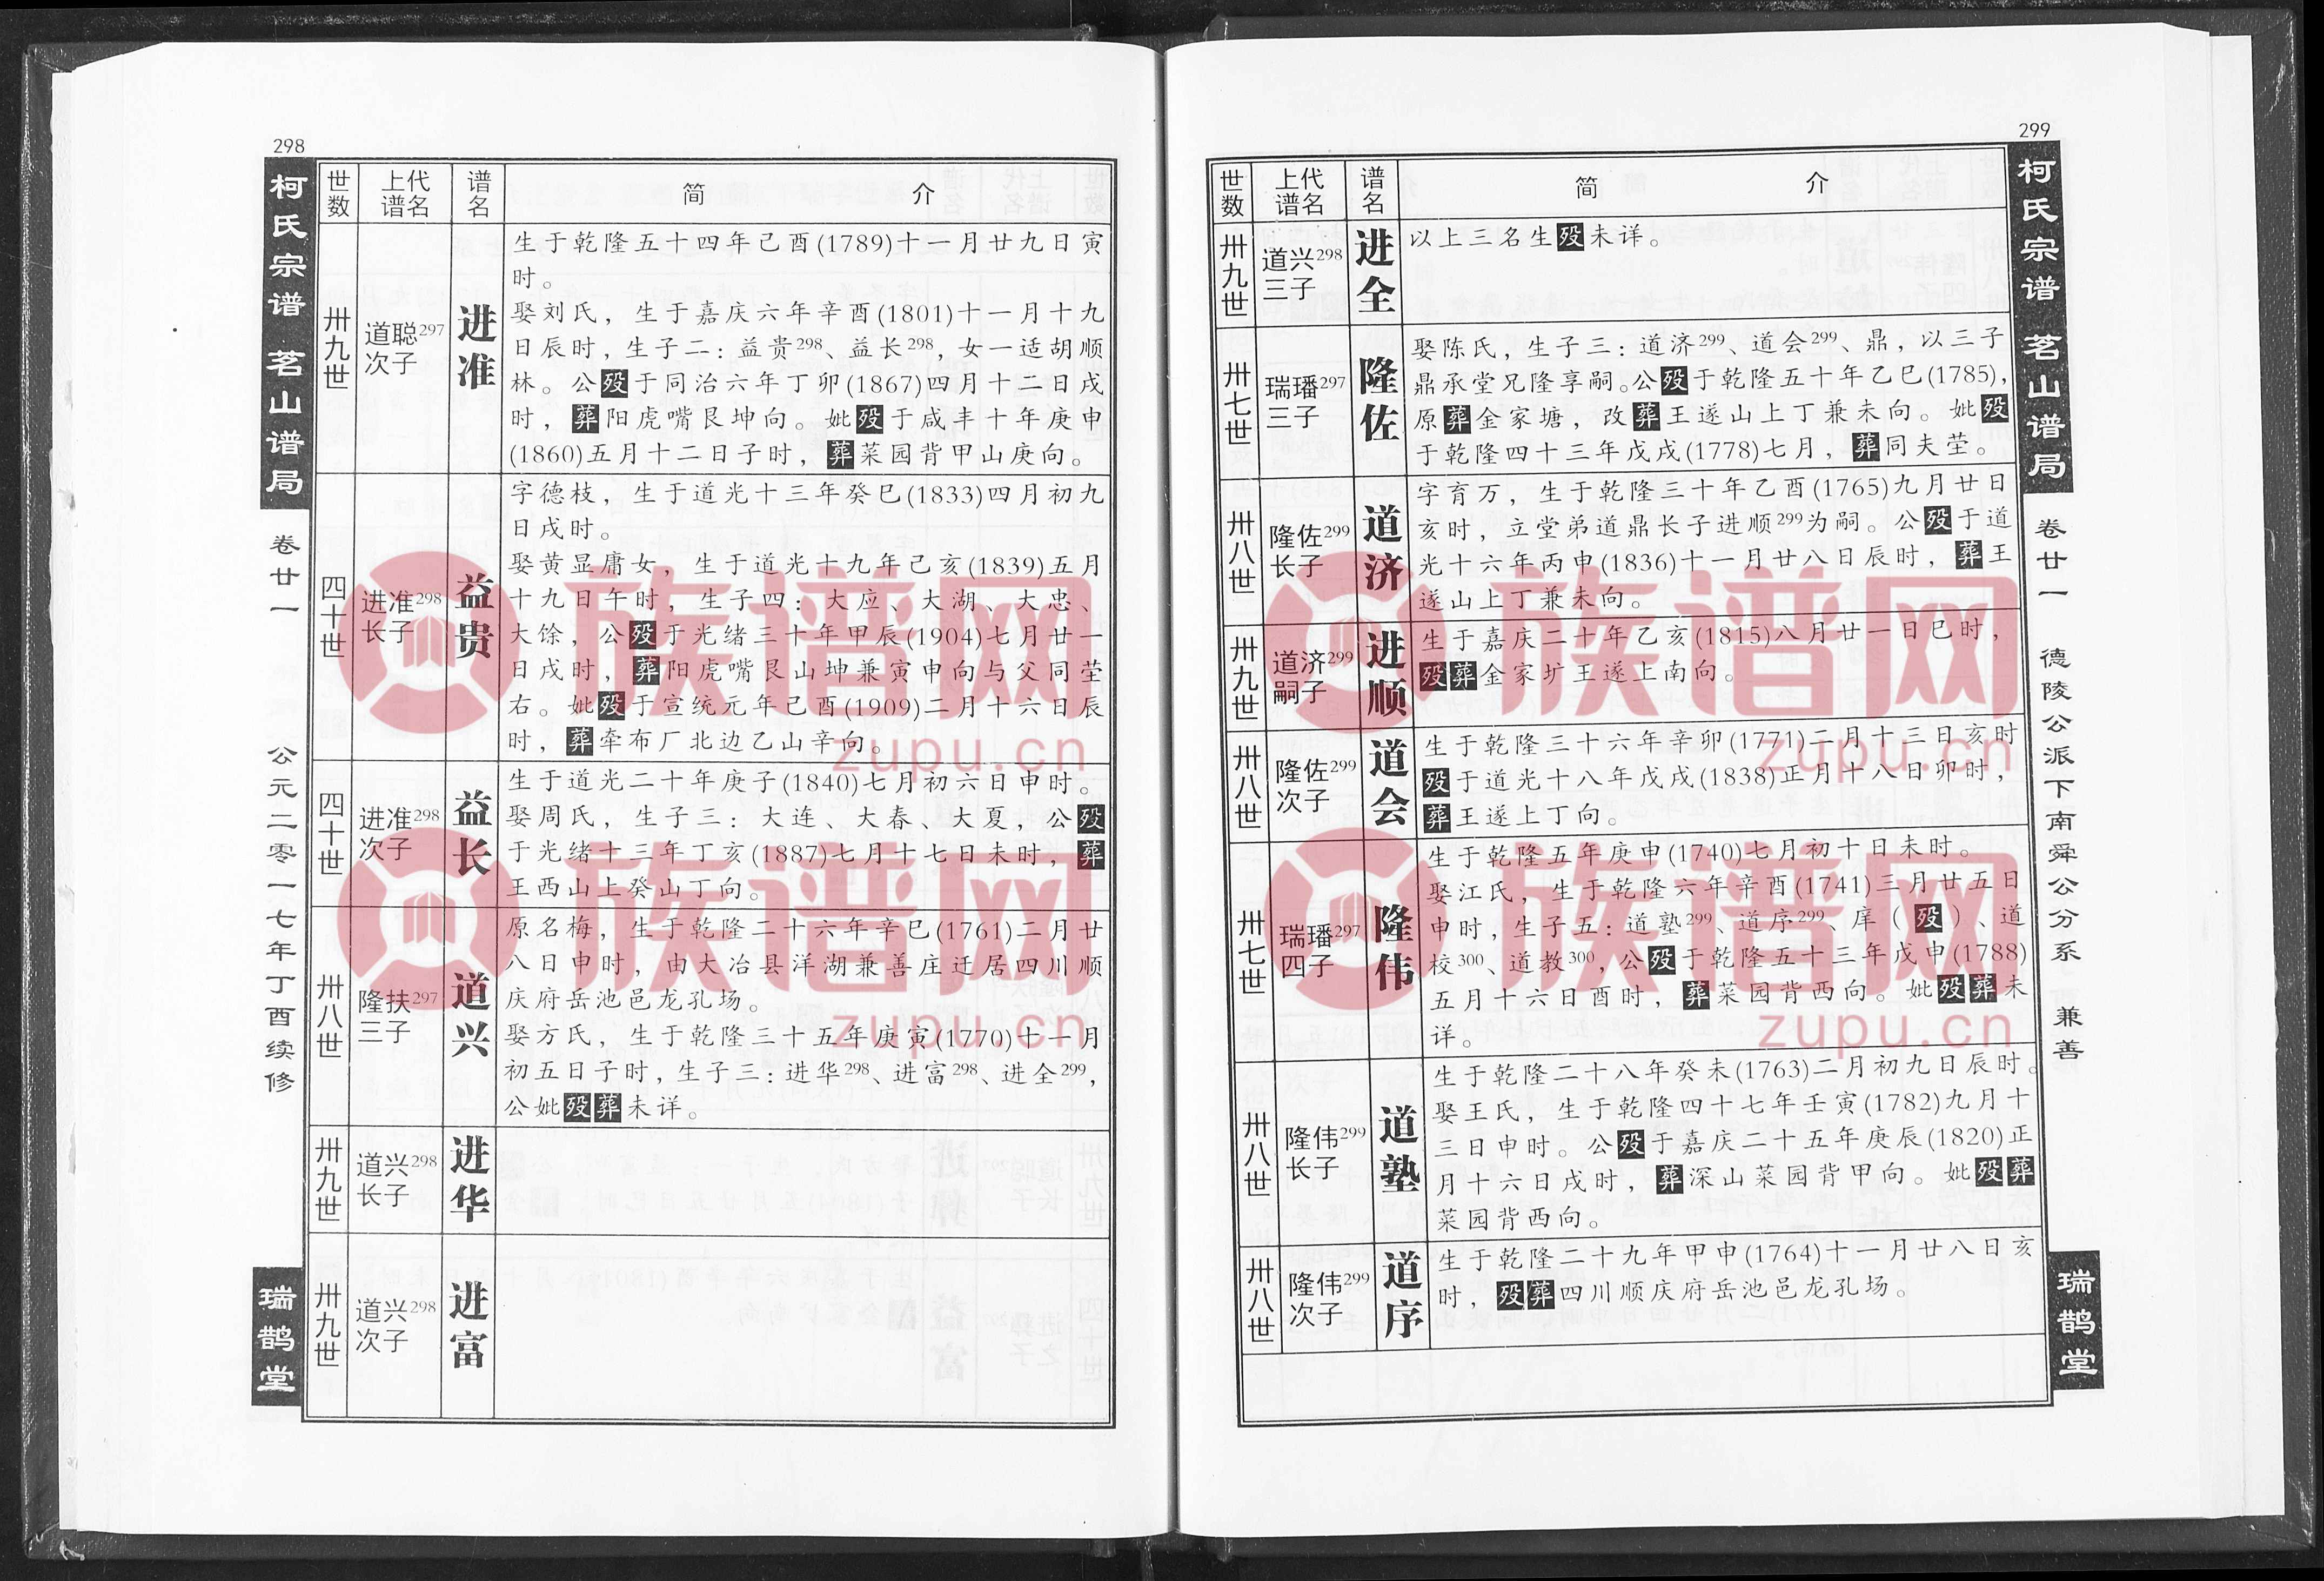 298
柯氏宗谱 茗山谱局
卷廿一
公元二零一七年丁酉续修
瑞鹊堂
世数 上代谱名 谱名 简介
卅九世
道聪297
次子
进准
生于乾隆五十四年己酉(1789)十一月廿九日寅
时。
娶刘氏，生于嘉庆六年辛酉(1801)十一月十九
日辰时，生子二：益贵298、益长298，女一适胡顺
林。公殁于同治六年丁卯(1867)四月十二日戌
时，葬阳虎嘴艮坤向。妣殁于咸丰十年庚申
(1860)五月十二日子时，葬菜园背甲山庚向。
四十世
进准298
长子
益贵
字德枝，生于道光十三年癸巳(1833)四月初九
日戌时。
娶黄显庸女，生于道光十九年己亥(1839)五月
十九日午时，生子四：大应、大湖、大忠、
大馀，公殁于光绪三十年甲辰(1904)七月廿一
日戌时，葬阳虎嘴艮山坤兼寅申向与父同茔
右。妣殁于宣统元年己酉(1909)二月十六日辰
时，葬牵布厂北边乙山辛向。
四十世
进准298
次子
益长
生于道光二十年庚子(1840)七月初六日申时。
娶周氏，生子三：大连、大春、大夏，公殁
于光绪十三年丁亥(1887)七月十七日未时，葬
王西山上癸山丁向。
卅八世
隆扶297
三子
道兴
原名梅，生于乾隆二十六年辛巳(1761)二月廿
八日申时，由大冶县洋湖兼善庄迁居四川顺
庆府岳池邑龙孔场。
娶方氏，生于乾隆三十五年庚寅(1770)十一月
初五日子时，生子三：进华298、进富298、进全299，
公妣殁葬未详。
卅九世
道兴298
长子
进华
卅九世
道兴298
次子
进富
299
柯氏宗谱 茗山谱局
卷廿一
德陵公派下南舜公分系 兼善
瑞鹊堂
世数 上代谱名 谱名 简介
卅九世
道兴298
三子
进全
以上三名生殁未详。
卅七世
瑞璠297
三子
隆佐
娶陈氏，生子三：道济299、道会299、鼎，以三子
鼎承堂兄隆享嗣。公殁于乾隆五十年乙巳(1785)，
原葬金家塘，改葬王遂山上丁兼未向。妣殁
于乾隆四十三年戊戌(1778)七月，葬同夫茔。
卅八世
隆佐299
长子
道济
字育万，生于乾隆三十年乙酉(1765)九月廿日
亥时，立堂弟道鼎长子进顺299为嗣。公殁于道
光十六年丙申(1836)十一月廿八日辰时，葬王
遂山上丁兼未向。
卅九世
道济299
嗣子
进顺
生于嘉庆二十年乙亥(1815)八月廿一日巳时，
殁葬金家圹王遂上南向。
卅八世
隆佐299
次子
道会
生于乾隆三十六年辛卯(1771)二月十三日亥时
殁于道光十八年戊戌(1838)正月十八日卯时，
葬王遂上丁向。
卅七世
瑞璠297
四子
隆伟
生于乾隆五年庚申(1740)七月初十日未时。
娶江氏，生于乾隆六年辛酉(1741)三月廿五日
申时，生子五：道塾299、道序299、庠（殁）、道
校300、道教300，公殁于乾隆五十三年戊申(1788)
五月十六日酉时，葬菜园背西向。妣殁葬未
详。
卅八世
隆伟299
长子
道塾
生于乾隆二十八年癸未(1763)二月初九日辰时。
娶王氏，生于乾隆四十七年壬寅(1782)九月十
三日申时。公殁于嘉庆二十五年庚辰(1820)正
月十六日戌时，葬深山菜园背甲向。妣殁葬
菜园背西向。
卅八世
隆伟299
次子
道序
生于乾隆二十九年甲申(1764)十一月廿八日亥
时，殁葬四川顺庆府岳池邑龙孔场。
族谱网
zupu.cn
族谱网
zupu.cn
族谱网
zupu.cn
族谱网
zupu.cn